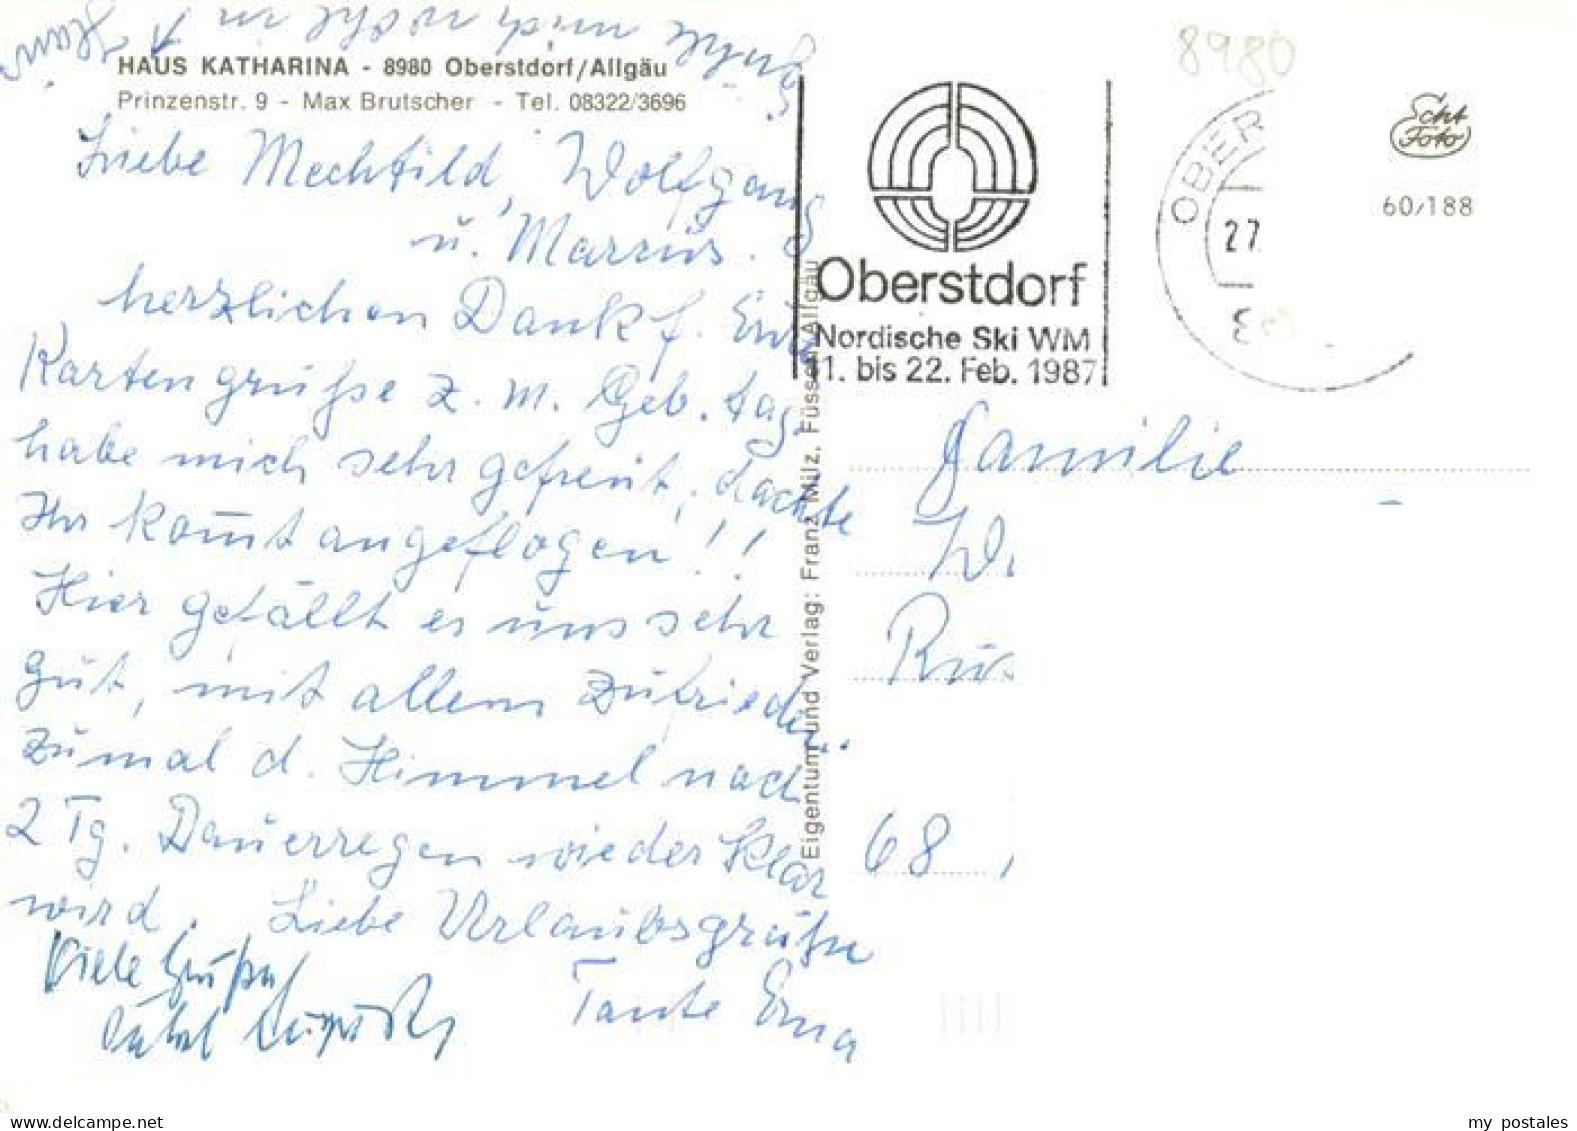 HAUS KATHARINA - 8980 Oberstdorf/Allgäu
Prinzenstr. 9 - Max Brutscher - Tel. 08322/3696
Liebe Mechtild, Wolfgang
u. Marcus.
herzlichen Dank f. Eure
Kartengrüße z. m. Geb. tag.
habe mich sehr gefreut, dachte
Ihr kommt angeflogen!!
Hier gefällt es uns sehr
gut, mit allem zufrieden
zumal d. Himmel nach
2 Tg. Dauerregen wieder klar
wird. Liebe Urlaubsgrüße
Tante Erna
Viele Grüße
Onkel
8980
Oberstdorf
Nordische Ski WM
11. bis 22. Feb. 1987
OBER
27.
Echt
Foto
60/188
Eigentum und Verlag: Franz Milz, Füssen/Allgäu
Familie
W
Rus
68
my postales